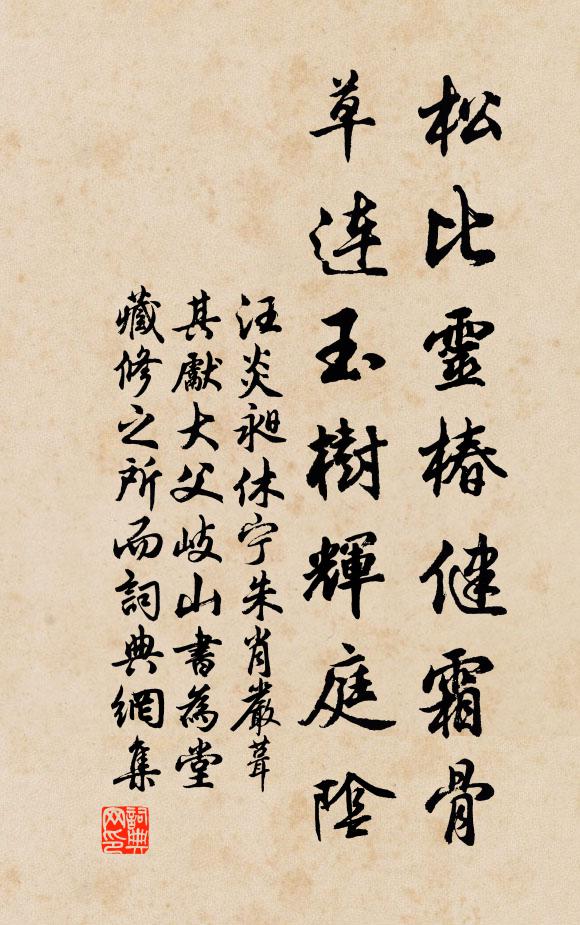 松比靈椿健霜骨
草连玉樹輝庭陰
汪炎昶休宁朱肖嚴葺
其獻大父岐山書為堂
藏修之所而詞典網集
詞典
网印